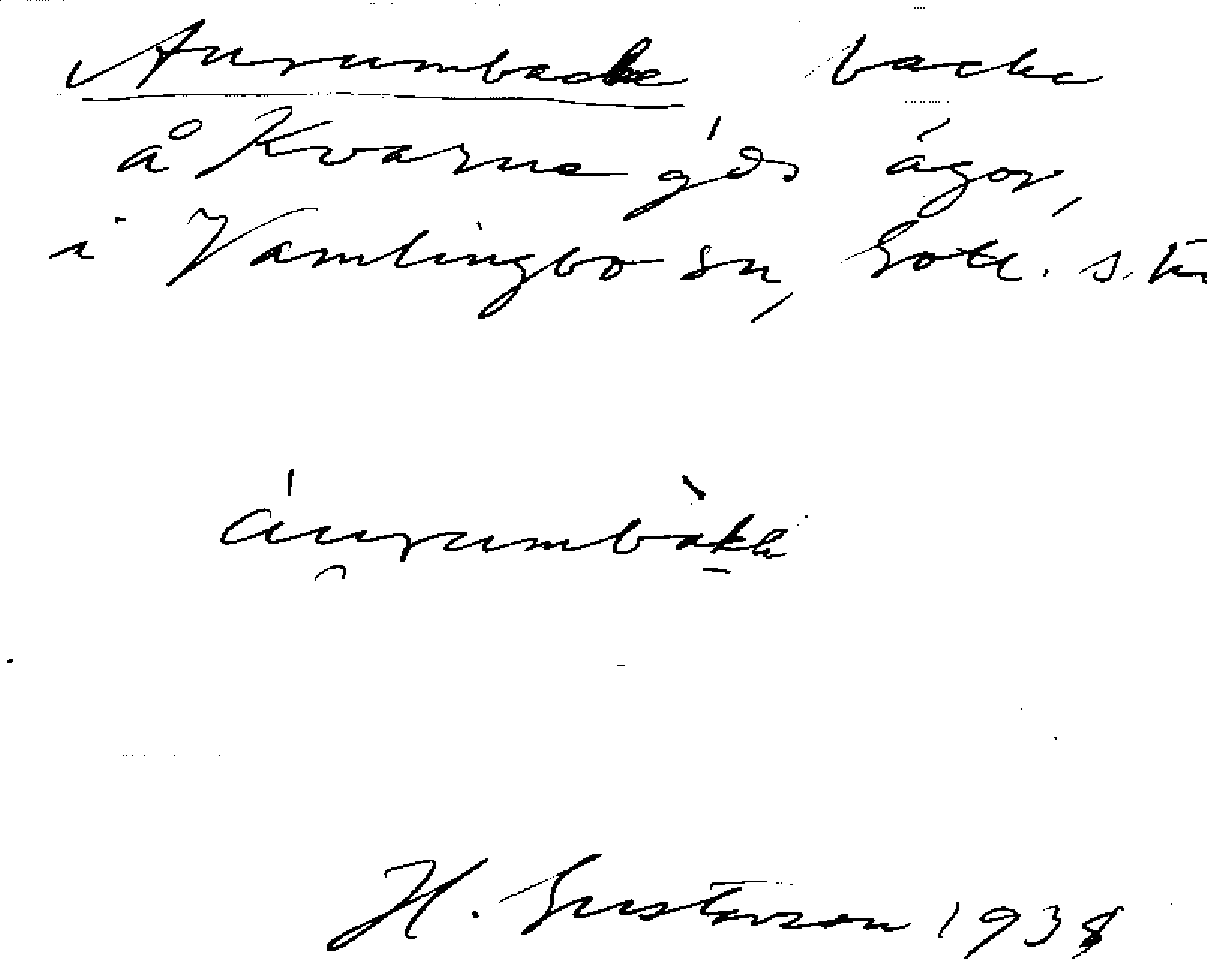 Aurumbacke backe
å Kvarne gds ägor,
i Vamlingbo sn, Gotl. s.
áurumbàkkä
H. Gustavson 1938